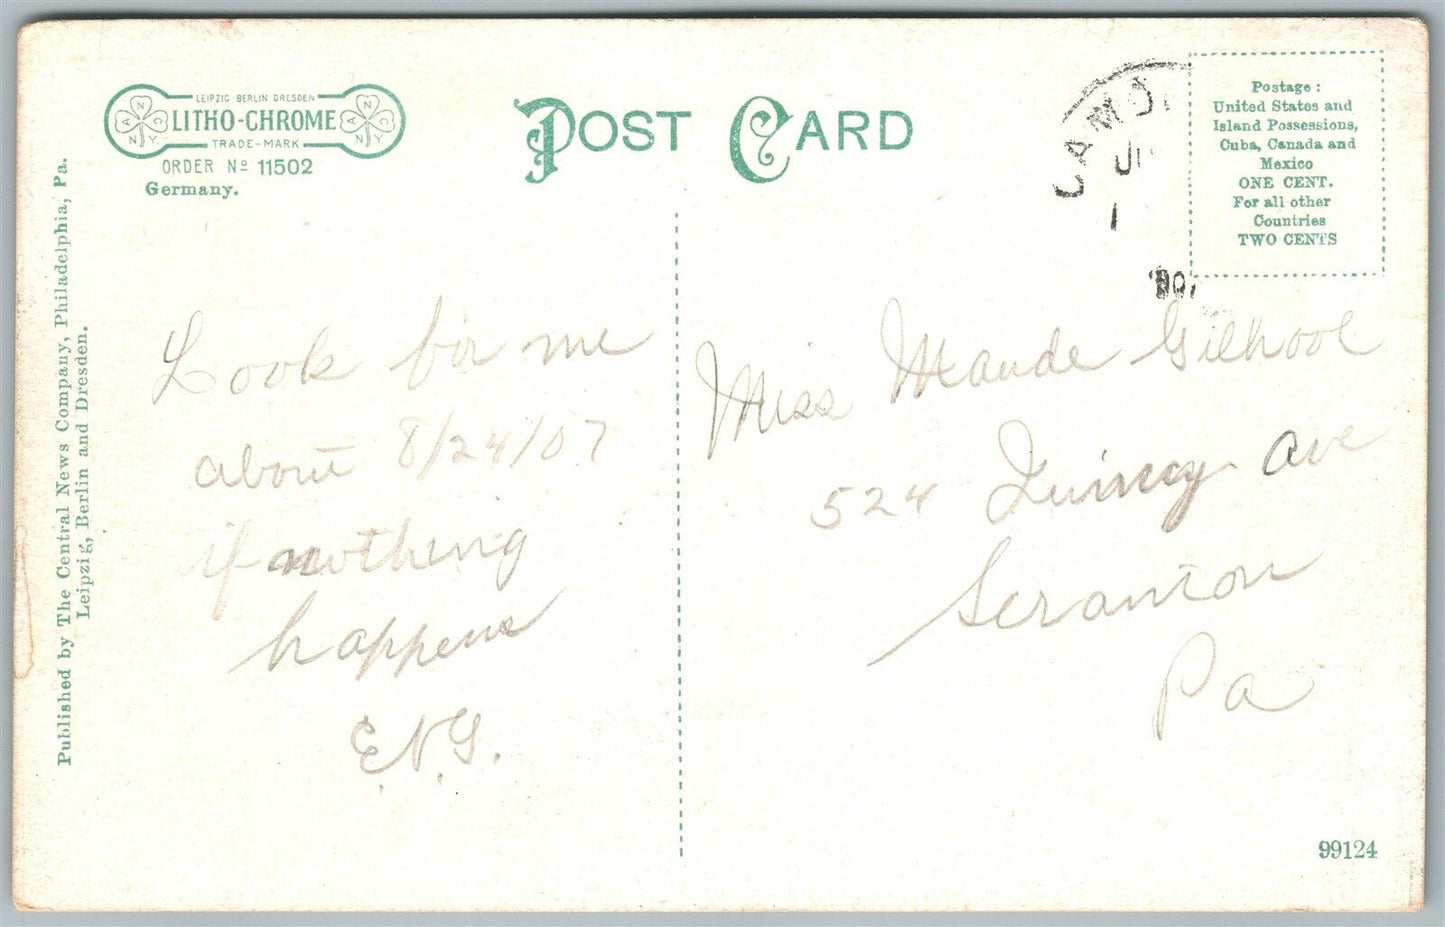 LEIPZIG BERLIN DRESDEN
LITHO-CHROME
TRADE-MARK
ORDER No 11502
Germany.
POST CARD
Postage:
United States and
Island Possessions,
Cuba, Canada and
Mexico
ONE CENT.
For all other
Countries
TWO CENTS
Published by The Central News Company, Philadelphia, Pa.
Leipzig, Berlin and Dresden.
Look for me
about 8/24/07
if nothing
happens
E.N.G.
Miss Maude Gilhool
524 Quincy Ave
Scranton
Pa
99124